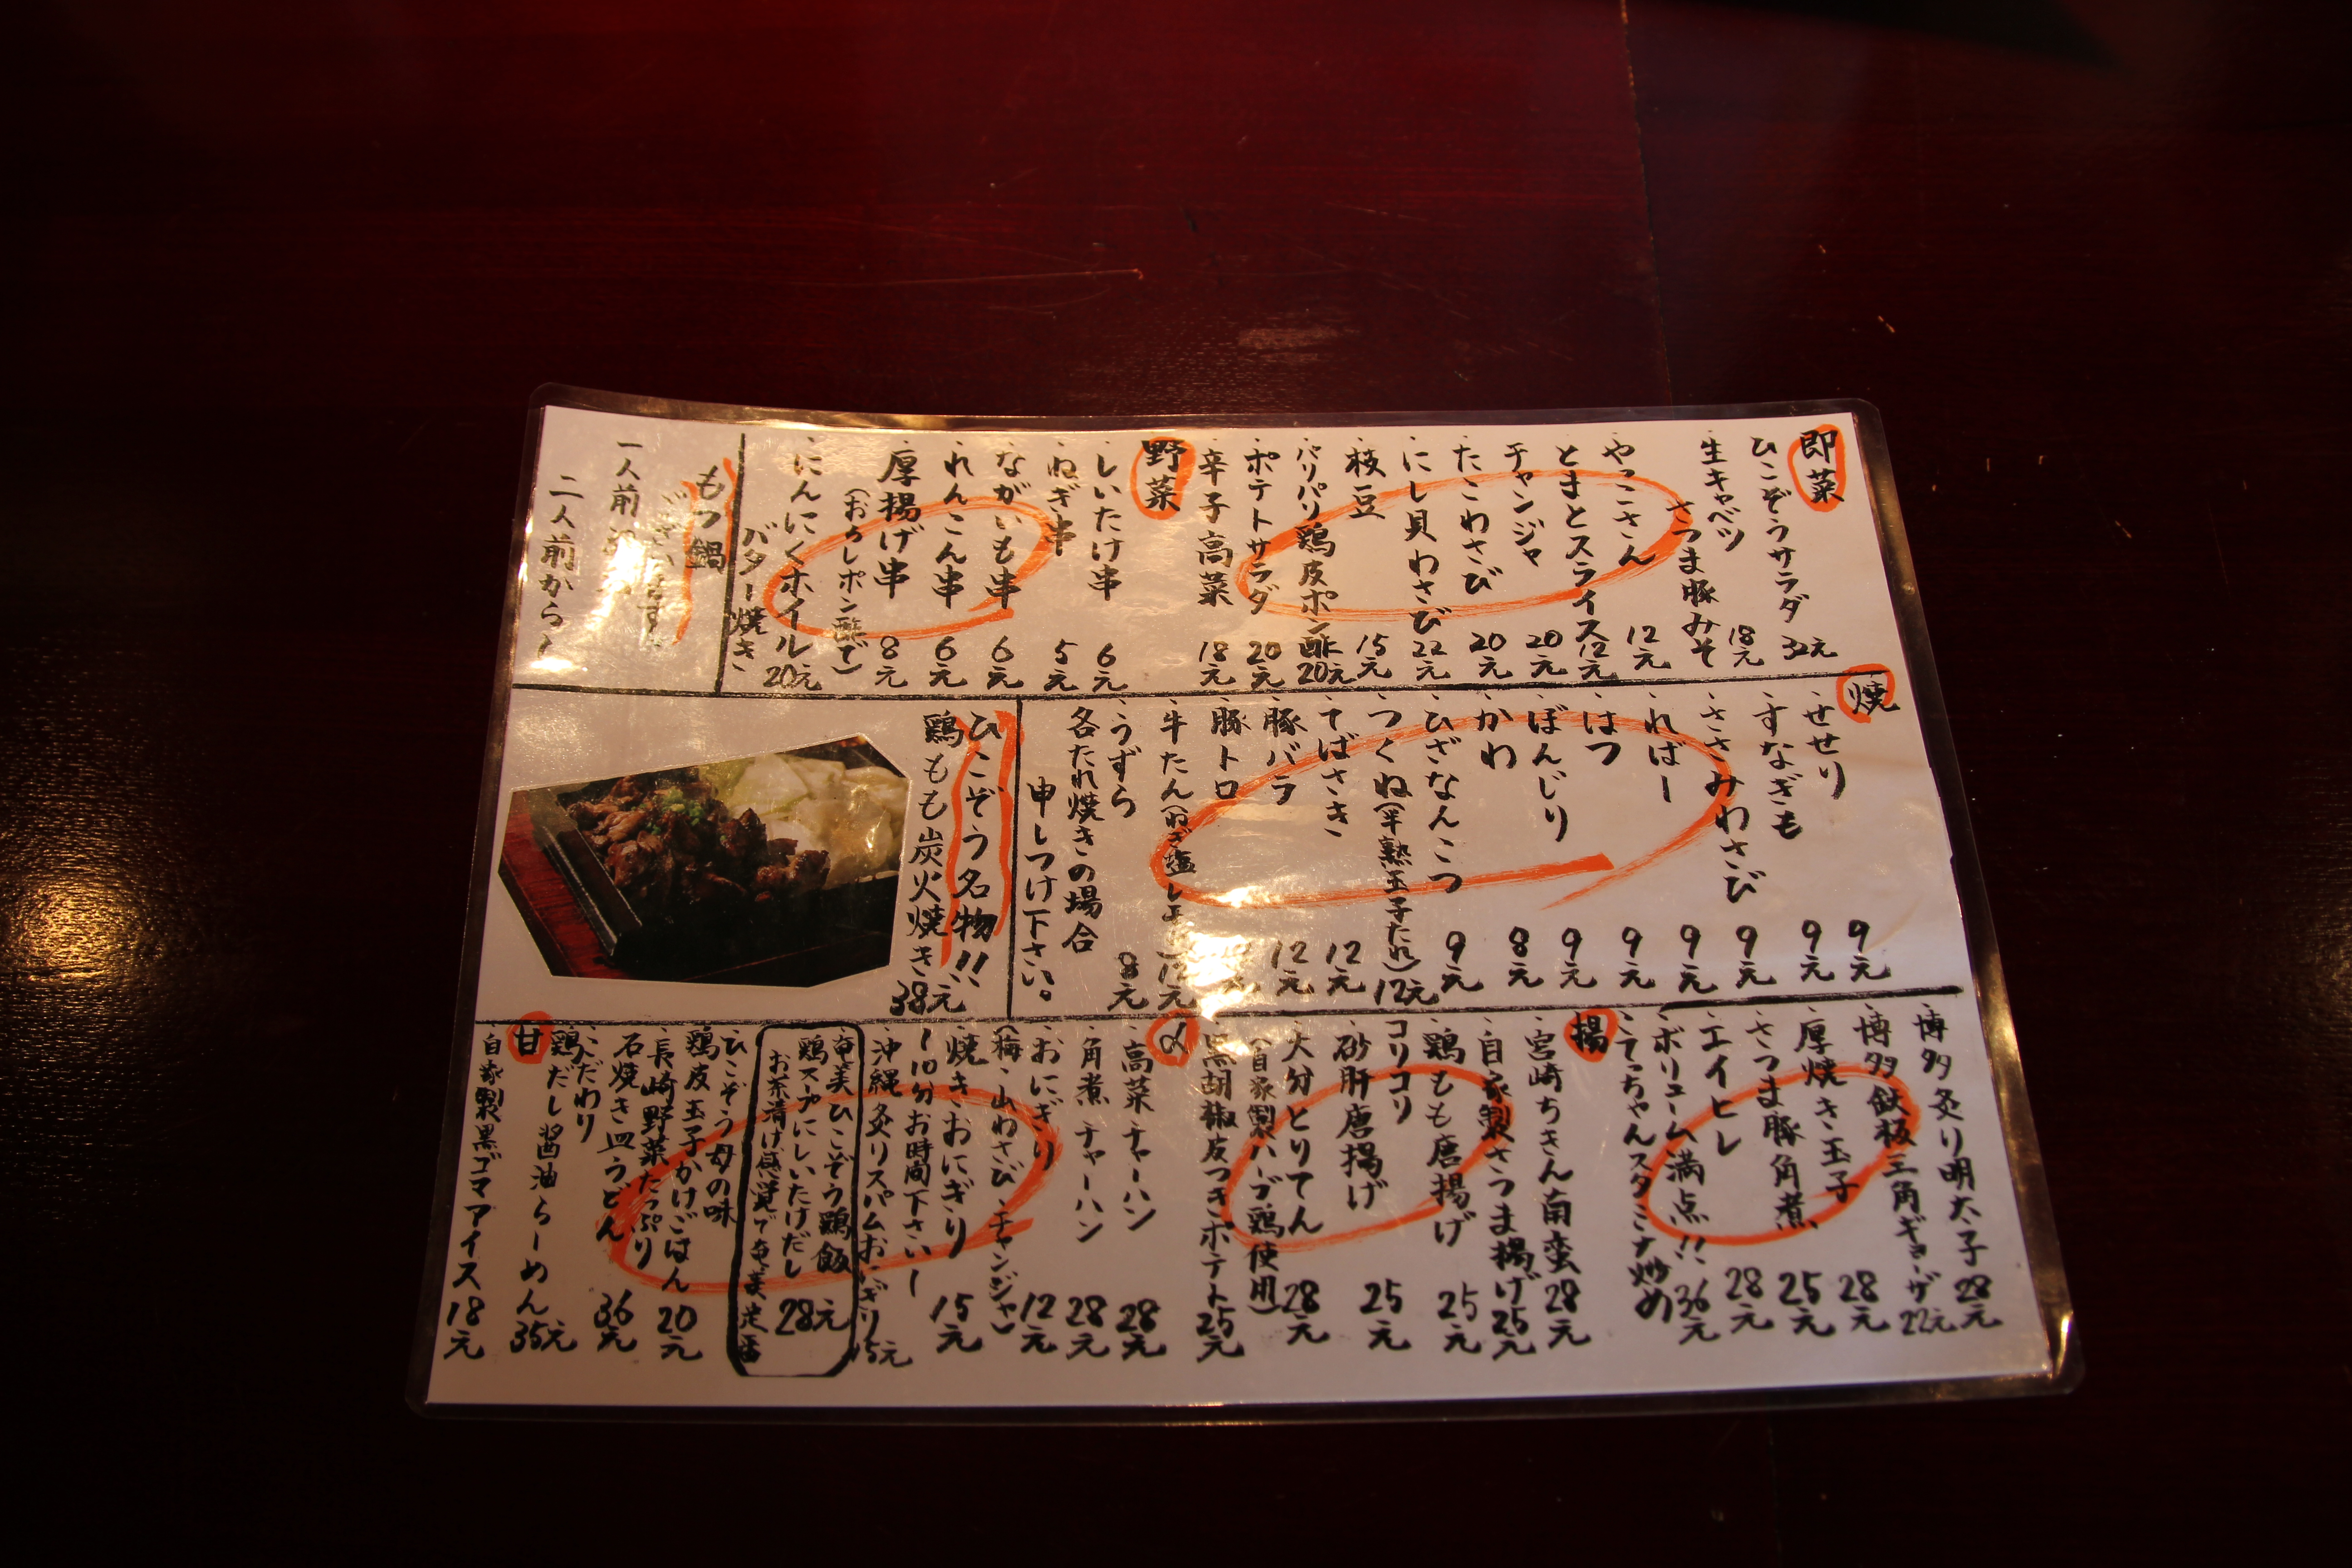 即菜
ひこぞうサラダ 32元
生キャベツ
さつま豚みそ 18元
やっこさん 12元
とまとスライス 12元
チャンジャ 20元
たこわさび 20元
にし貝わさび 22元
枝豆 15元
パリパリ鶏皮ポン酢 20元
ポテトサラダ 20元
辛子高菜 18元
野菜
しいたけ串 6元
ねぎ串 5元
ながいも串 6元
れんこん串 6元
厚揚げ串 8元
(おろしポン酢で)
にんにくホイル 20元
バター焼き
もつ鍋
ございます
一人前
二人前から
焼
せせり 9元
すなぎも 9元
ささみわさび 9元
ればー 9元
はつ 9元
ぼんじり 9元
かわ 8元
ひざなんこつ 9元
つくね(半熟玉子たれ) 12元
てばさき 12元
豚バラ 12元
豚トロ
牛たん(ねぎ塩 12元
うずら 8元
各たれ焼きの場合
申しつけ下さい。
ひこぞう名物!!
鶏もも炭火焼き 38元
博多炙り明太子 28元
博多鉄板三角ギョーザ 22元
厚焼き玉子 28元
さつま豚角煮 25元
エイヒレ 28元
ボリューム満点!! 36元
こてっちゃんスタミナ炒め
揚
宮崎ちきん南蛮 28元
自家製さつま揚げ 25元
鶏もも唐揚げ 25元
コリコリ
砂肝唐揚げ 25元
大分とりてん 28元
(自家製ハーブ鶏使用)
黒胡椒皮つきポテト 25元
〆
高菜チャーハン 28元
角煮チャーハン 28元
おにぎり 12元
(梅・山わさび・チャンジャ)
焼きおにぎり 15元
ー10分お時間下さいー
沖縄炙りスパムおにぎり 15元
奄美ひこぞう鶏飯
鶏スープにしいたけだし 28元
お茶漬け感覚で奄美定番
ひこぞう母の味
鶏皮玉子かけごはん 20元
長崎野菜たっぷり
石焼き皿うどん 36元
こだわり
鶏だし醤油らーめん 35元
甘
自家製黒ゴマアイス 18元